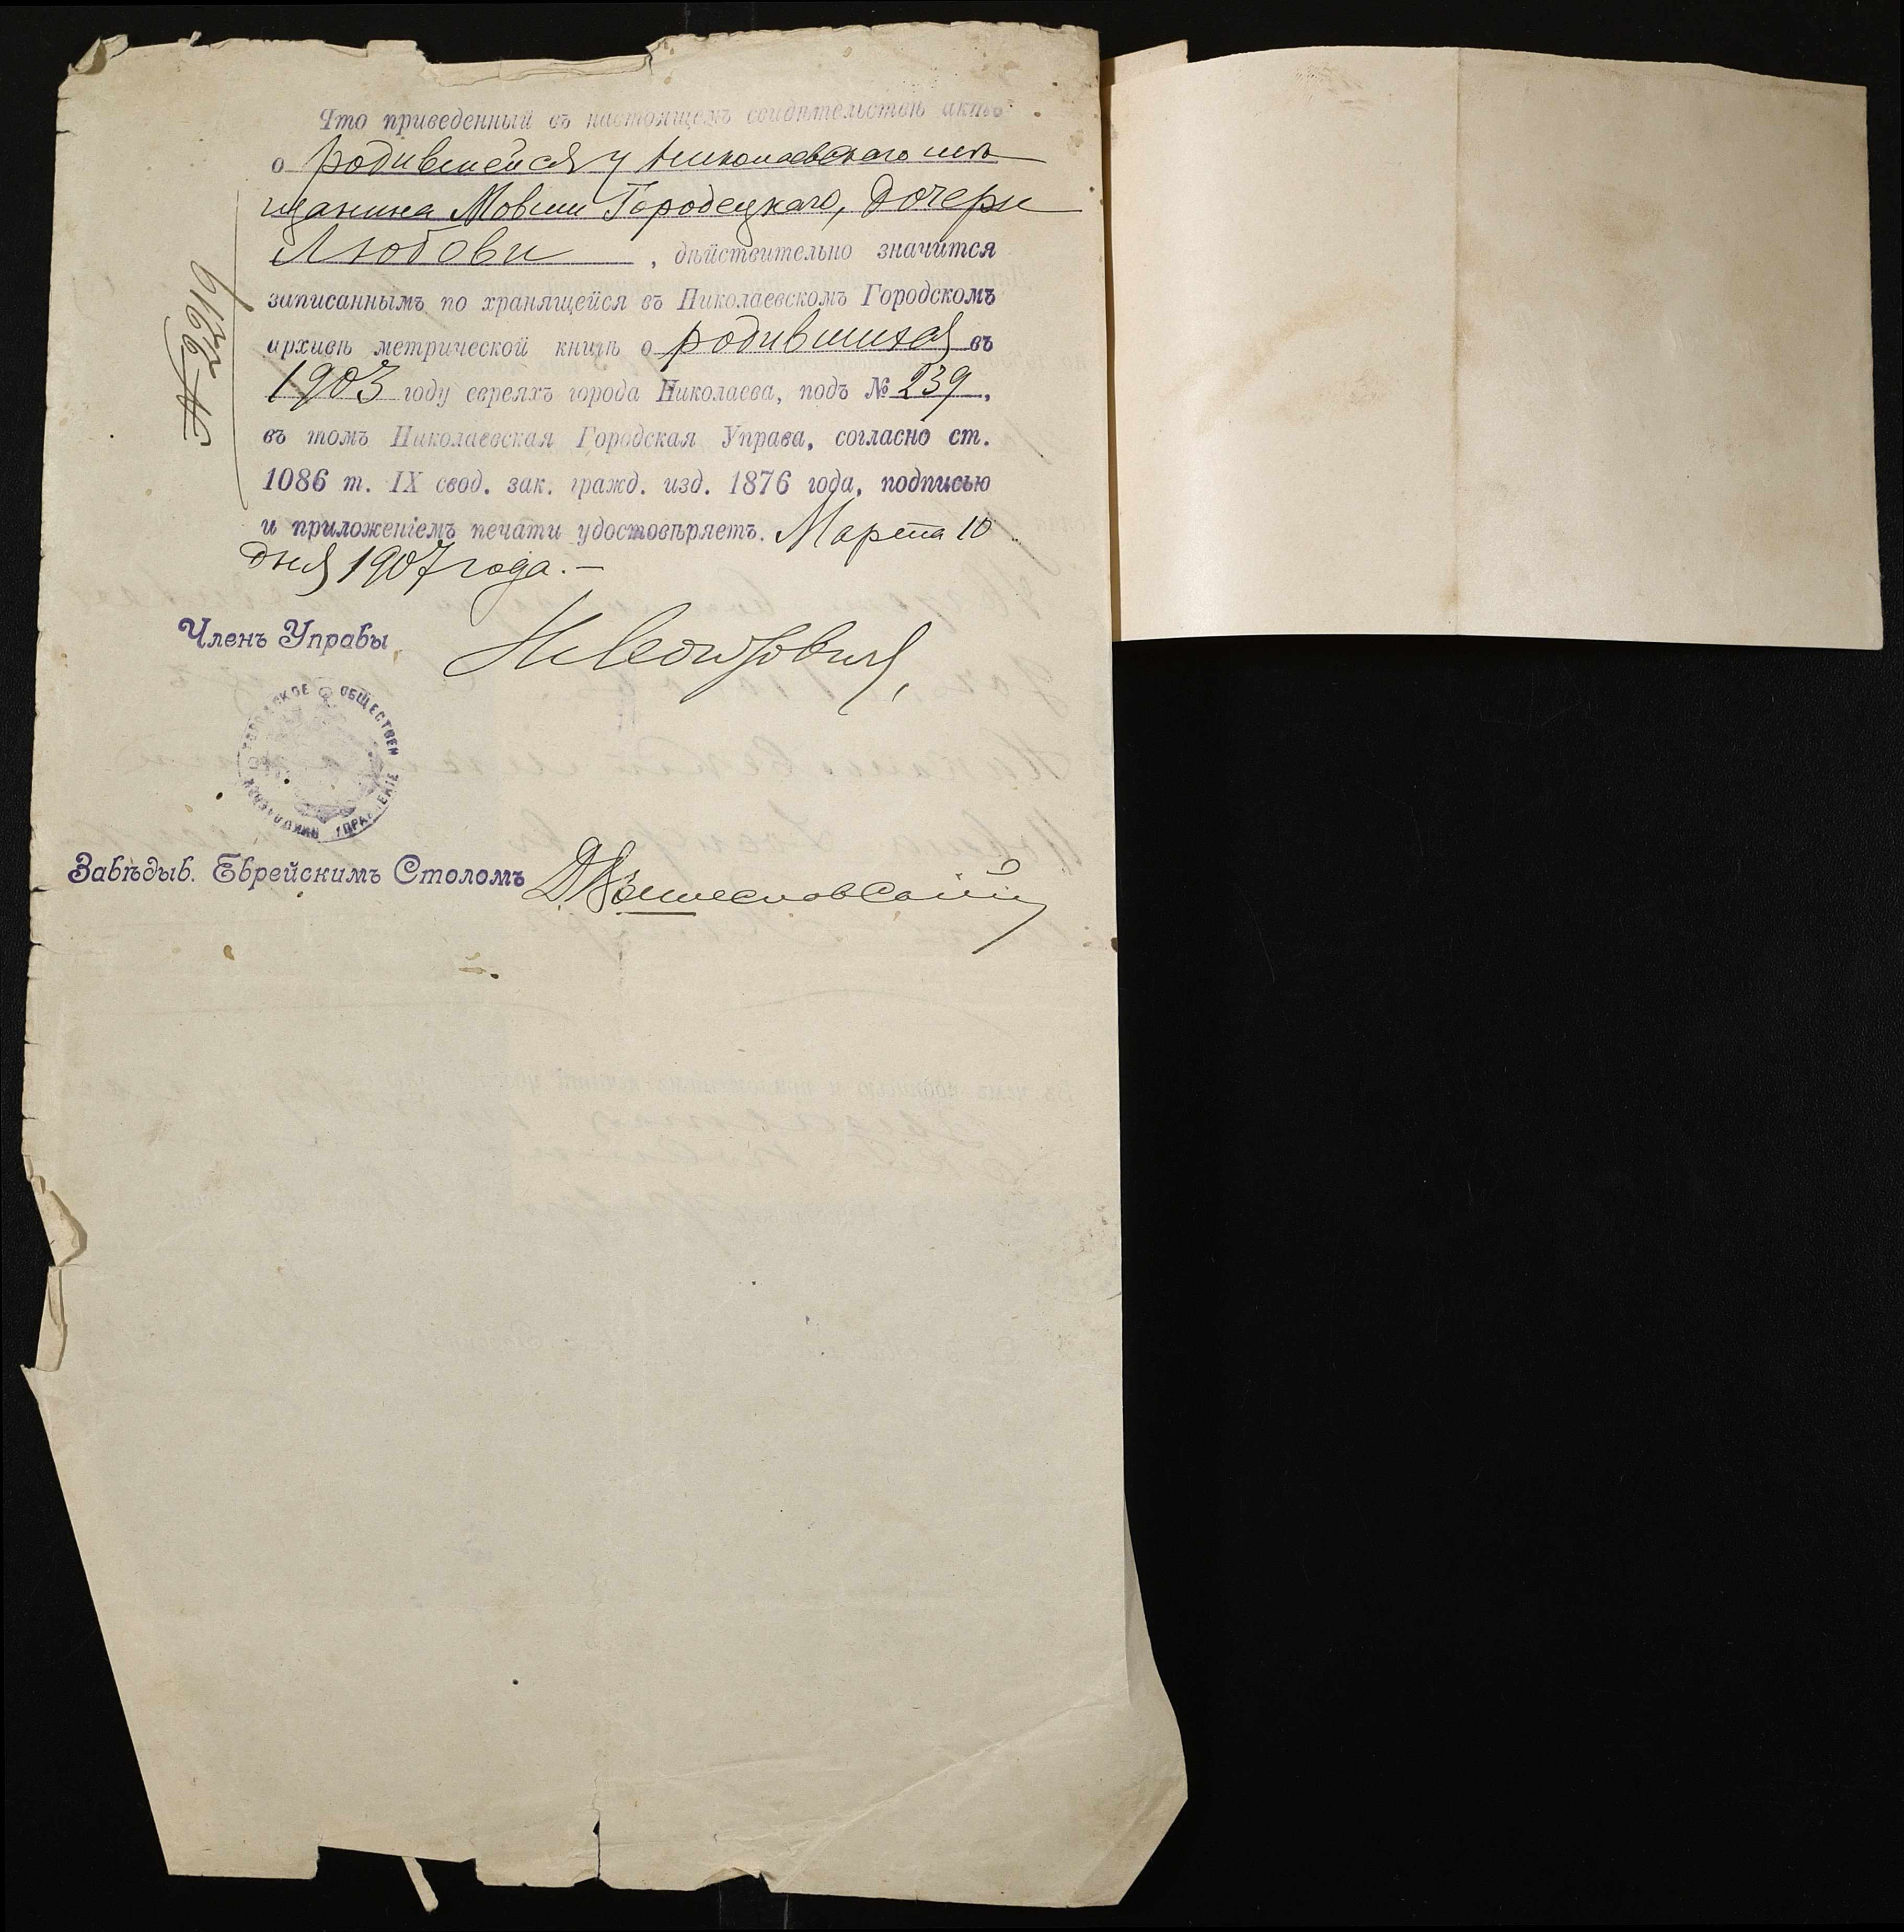 Что приведенный въ настоящемъ свидѣтельствѣ актъ
о родившейся у Николаевскаго мѣ
щанина Мовши Городецкаго, дочери
Любови, дѣйствительно значится
записаннымъ по хранящейся въ Николаевскомъ Городскомъ
архивѣ метрической книгѣ о родившихся въ
1903 году евреяхъ города Николаева, подъ № 239,
въ томъ Николаевская Городская Управа, согласно ст.
1086 т. IX свод. зак. гражд. изд. 1876 года, подписью
и приложеніемъ печати удостовѣряетъ. Марта 10
дня 1907 года.—
Членъ Управы
ГОРОДСКОЕ ОБЩЕСТВЕН
УПРАВЛЕНІЕ
Завѣдыв. Еврейскимъ Столомъ